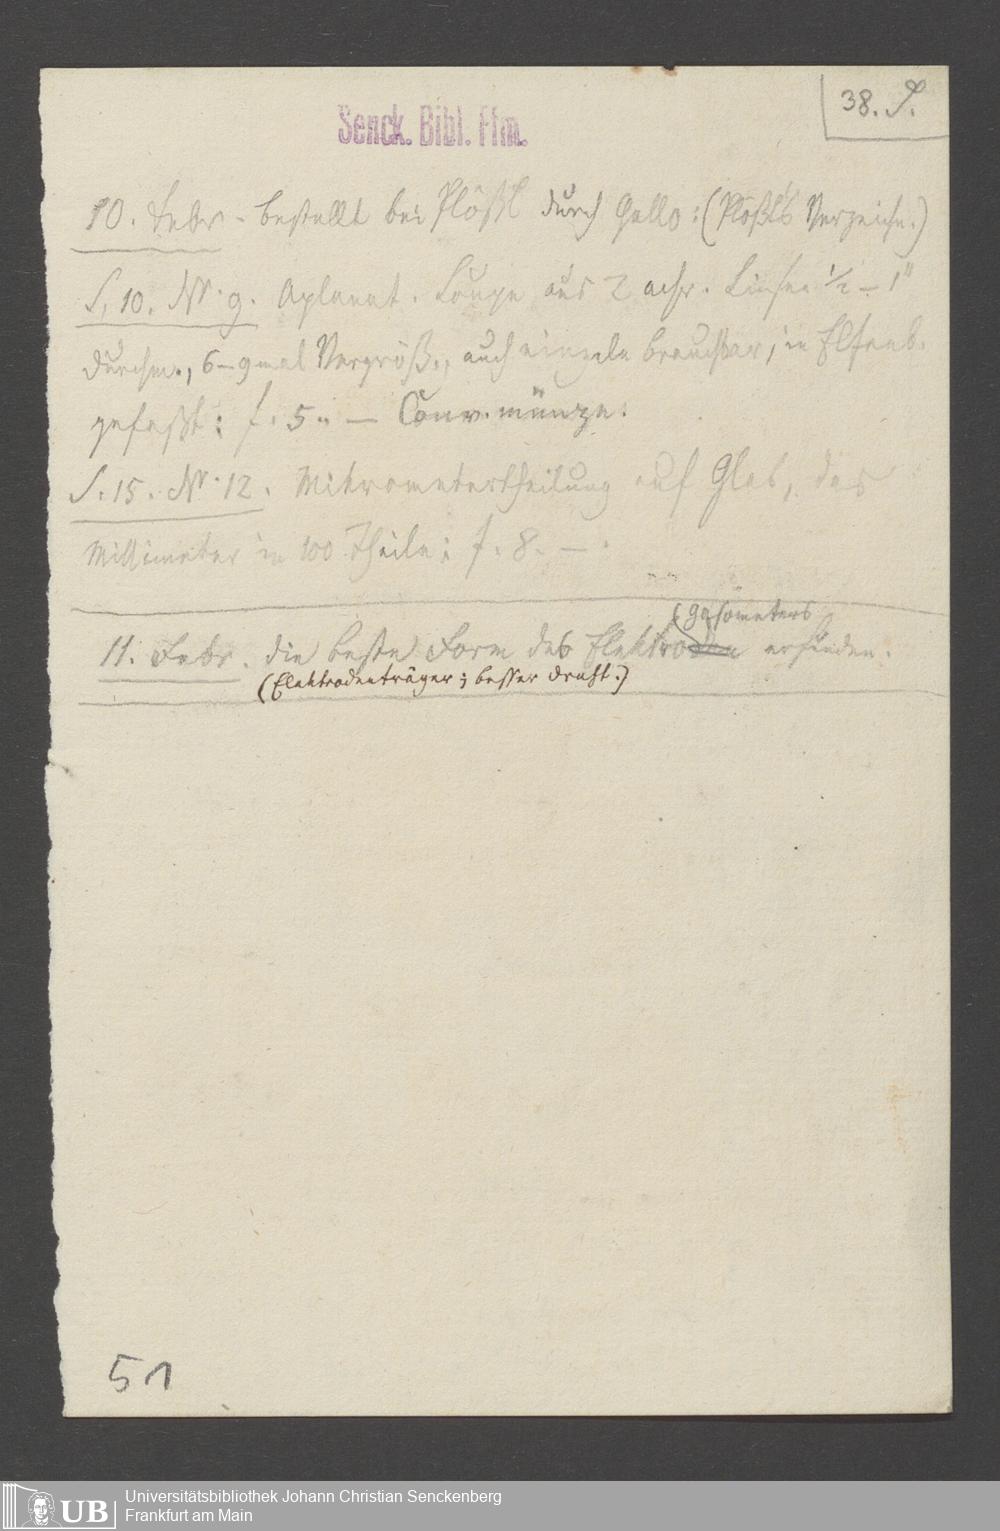 38. S.
Senck. Bibl. Ffm.
10. Febr - bestellt bei Plößl durch Gallo: (Plößl's Verzeichn.)
S. 10. Nr. 9. Aplanat. Loupe aus 2 achr. Linsen ½ – 1"
Durchm., 6–9mal Vergröß., auch einzeln brauchbar, in Elfenb.
gefaßt: f. 5.. — Conv. münze.
S. 15. Nr. 12. Mikrometertheilung auf Glas, das
Millimeter in 100 Theile: f. 8. — .
(gasometers
11. Febr. die beste Form des Elektroden erfinden.
(Elektrodenträger; besser Draht.)
51
UB
Universitätsbibliothek Johann Christian Senckenberg
Frankfurt am Main